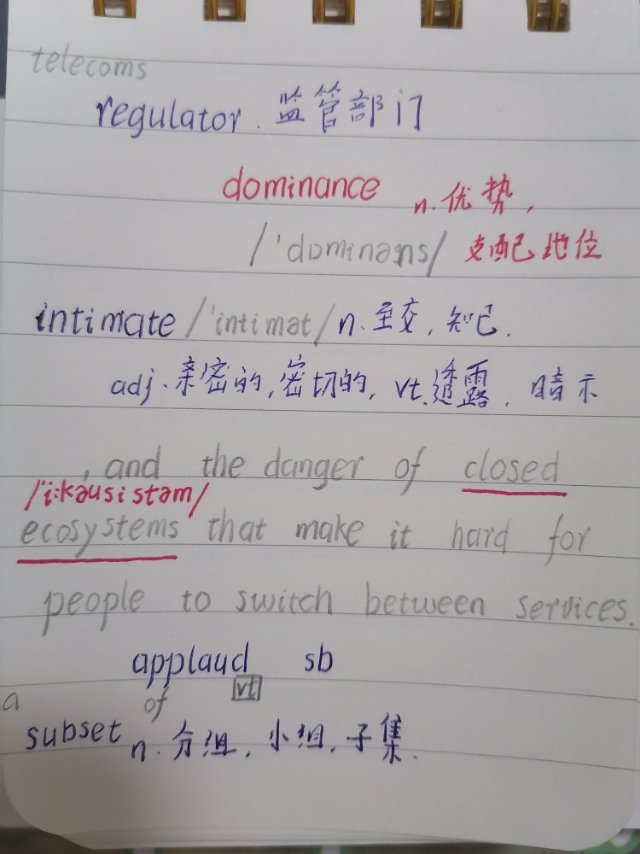 telecoms
regulator. 监管部门
dominance n. 优势,
/'dominəns/ 支配地位
intimate /'intimət/ n. 至交, 知己.
adj. 亲密的, 密切的, vt. 透露. 暗示
, and the danger of closed
/i:kəusistəm/
ecosystems that make it hard for
people to switch between services.
applaud sb
vt
a of
subset n. 分组, 小组, 子集.